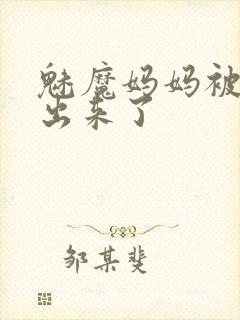 魅魔妈妈被
出来了
邹某斐